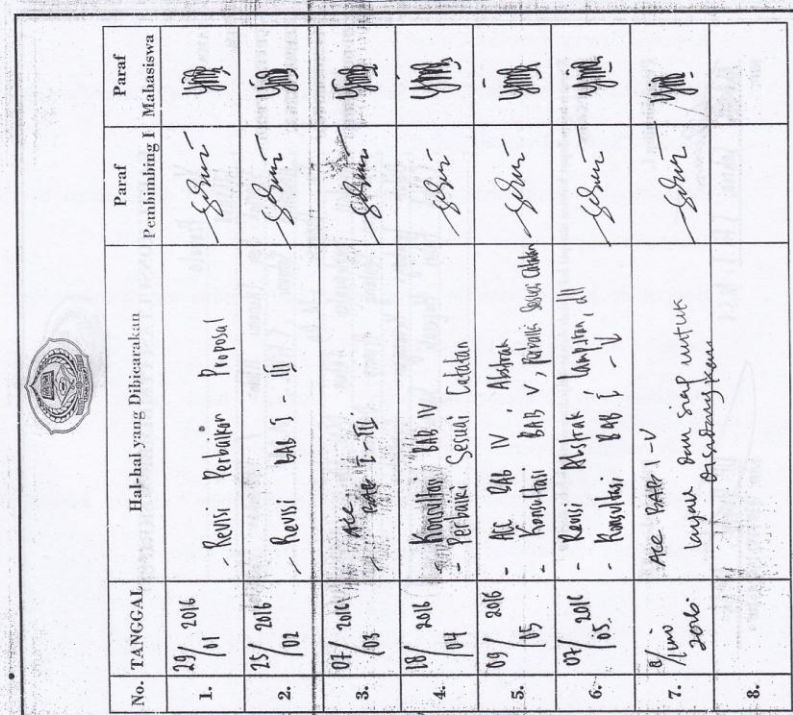 No. TANGGAL Hal-hal yang Dibicarakan Paraf Pembimbing I Paraf Mahasiswa
1. 29/01 2016 - Revisi Perbaikan Proposal
2. 25/02 2016 - Revisi BAB I - III
3. 07/03 2016 - Acc BAB I - III
4. 18/04 2016 - Konsultasi BAB IV
- Perbaiki Sesuai Catatan
5. 09/05 2016 - ACC BAB IV, Abstrak
- Konsultasi BAB V, perbaiki sesuai catatan
6. 07/05 2016 - Revisi Abstrak Lampiran, dll
- Konsultasi BAB I - V
7. 2016. Acc BAB I - V
layak dan siap untuk
disidangkan
8.